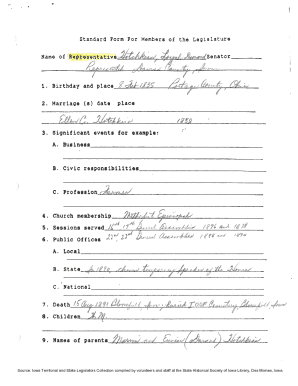 Standard Form For Members of the Legislature
Name of Representative Hotchkiss, Senator
Represented County, Iowa
1. Birthday and place 8 Feb 1835 Portage County, Ohio
2. Marriage (s) date place
Ellen C. Hotchkiss
3. Significant events for example:
A. Business
B. Civic responsibilities
C. Profession Farmer
4. Church membership Methodist Episcopal
5. Sessions served 16th, 17th General Assemblies 1876 and 1878
6. Public Offices 22nd, 23rd General Assemblies 1888 and 1890
A. Local
B. State In 1890, chosen temporary Speaker of the House
C. National
7. Death 15 Aug 1891 Bloomfield, Iowa; Buried IOOF Cemetery Bloomfield, Iowa
8. Children
9. Names of parents and Hotchkiss
Source: Iowa Territorial and State Legislators Collection compiled by volunteers and staff at the State Historical Society of Iowa Library, Des Moines, Iowa.